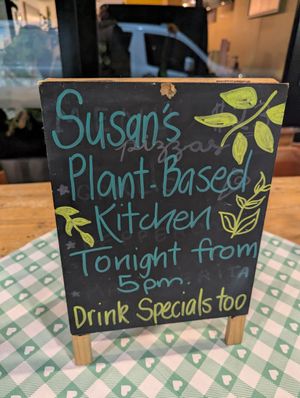 Susan's
Plant-Based
Kitchen
Tonight from
5pm.
Drink Specials too